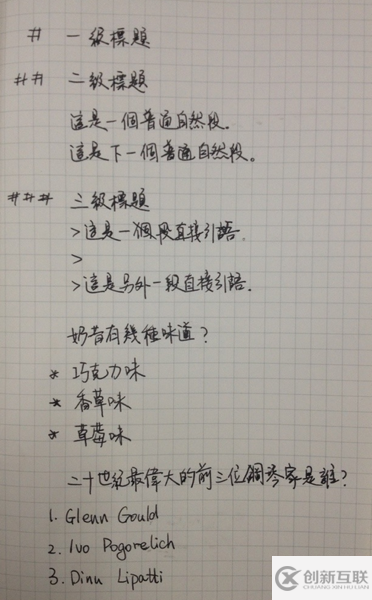 # 一級標題
## 二級標題
這是一個普通自然段.
這是下一個普通自然段。
### 三級標題
>這是一個段直接引語.
>
>這是另外一段直接引語.
奶昔有幾種味道?
* 巧克力味
* 香草味
* 草莓味
二十世紀最偉大的前三位鋼琴家是誰?
1. Glenn Gould
2. Ivo Pogorelich
3. Dinu Lipatti
创新互联